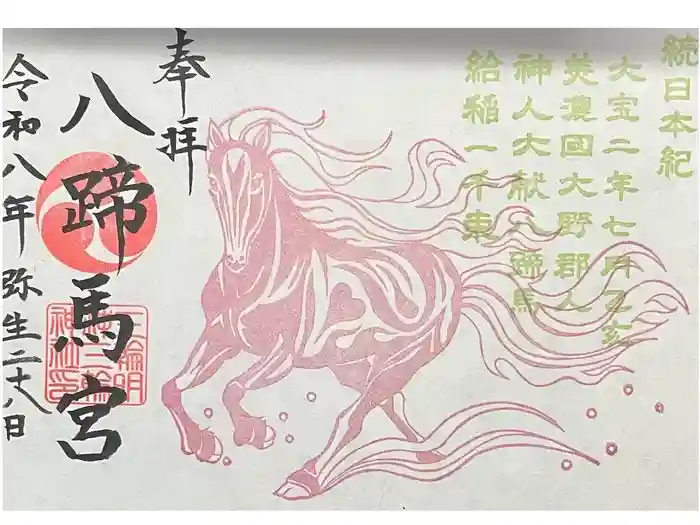 続日本紀
大宝二年七月乙亥
美濃国大野郡人
神人大献八蹄馬
給稲一千束
奉拝
八蹄馬宮
令和八年 弥生二十八日